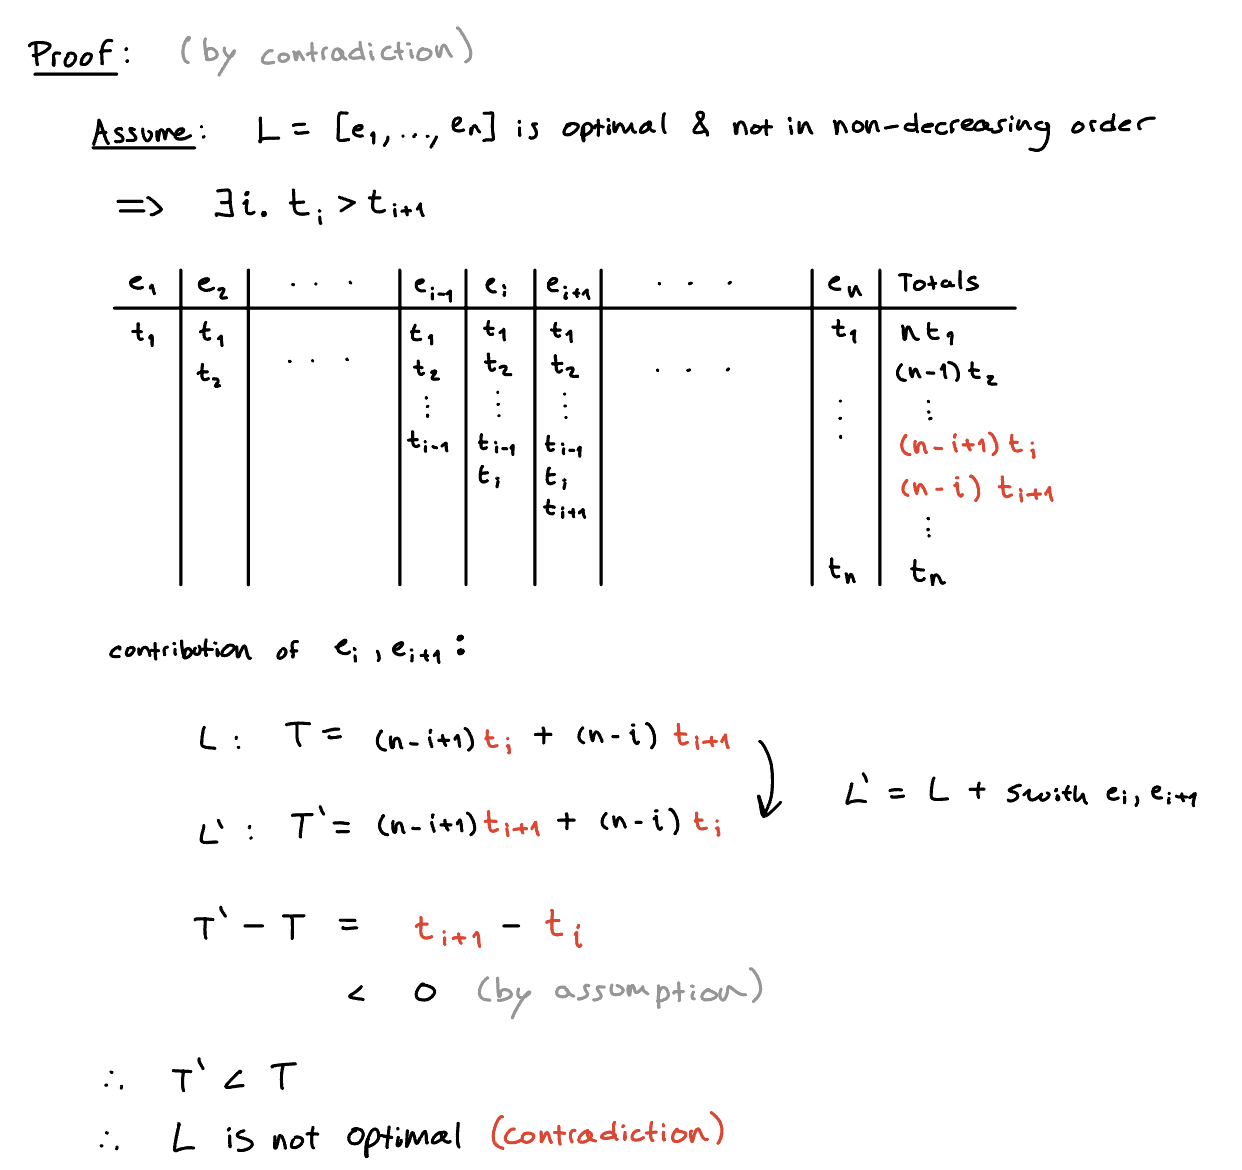 Proof: (by contradiction)
Assume: L = [e₁, ..., eₙ] is optimal & not in non-decreasing order
=> ∃i. tᵢ > tᵢ₊₁
e₁ e₂ . . . eᵢ₋₁ eᵢ eᵢ₊₁ . . . eₙ Totals
t₁ t₁ t₁ t₁ t₁ t₁ nt₁
t₂ . . . t₂ t₂ t₂ . . . (n-1)t₂
⋮ ⋮ ⋮ ⋮ ⋮
tᵢ₋₁ tᵢ₋₁ tᵢ₋₁ (n-i+1)tᵢ
tᵢ tᵢ (n-i) tᵢ₊₁
tᵢ₊₁ ⋮
tₙ tₙ
contribution of eᵢ, eᵢ₊₁:
L: T = (n-i+1)tᵢ + (n-i) tᵢ₊₁
L' = L + swith eᵢ, eᵢ₊₁
L': T' = (n-i+1)tᵢ₊₁ + (n-i) tᵢ
T' - T = tᵢ₊₁ - tᵢ
< 0 (by assumption)
∴ T' < T
∴ L is not optimal (contradiction)